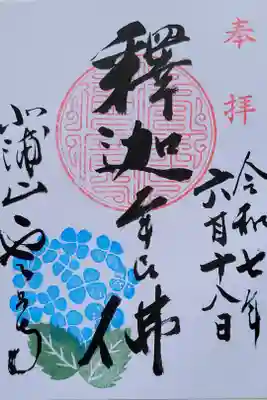 奉拝
令和七年
六月十八日
釋迦牟尼佛
小浦山